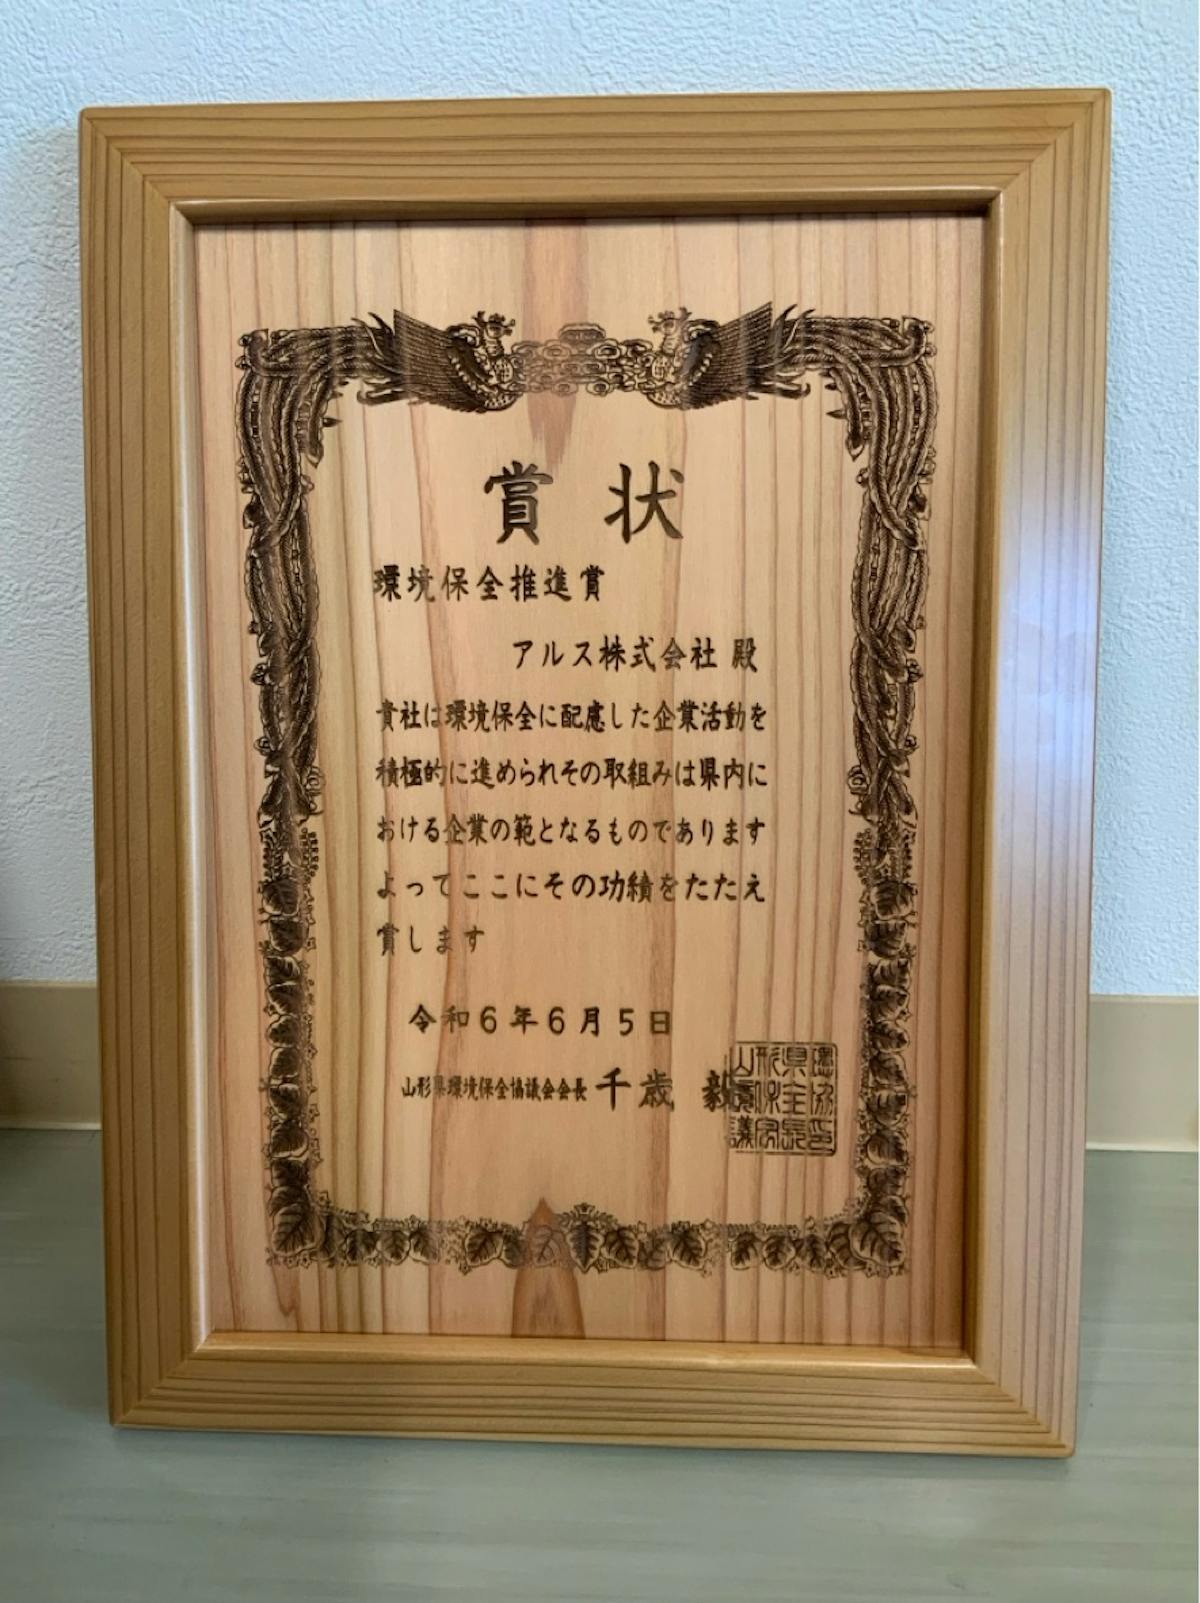 賞状
環境保全推進賞
アルス株式会社 殿
貴社は環境保全に配慮した企業活動を
積極的に進められその取組みは県内に
おける企業の範となるものであります
よってここにその功績をたたえ
賞します
令和6年6月5日
山形県環境保全協議会会長 千歳 毅